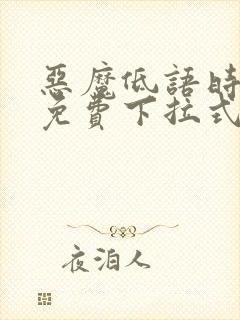 惡魔低語時
免費下拉式
夜泊人